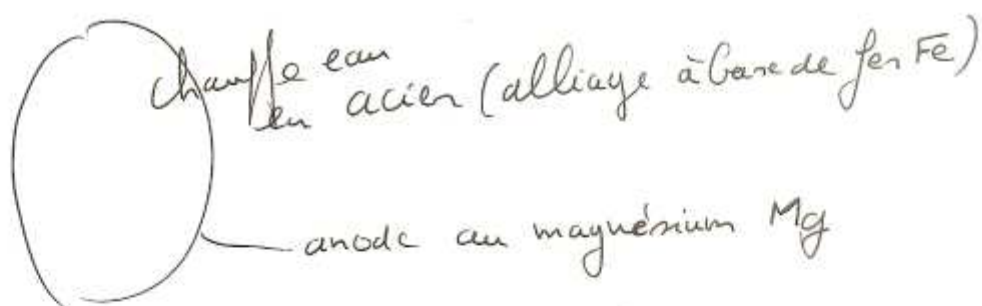 chauffe eau
en acier (alliage à base de fer Fe)
anode au magnésium Mg